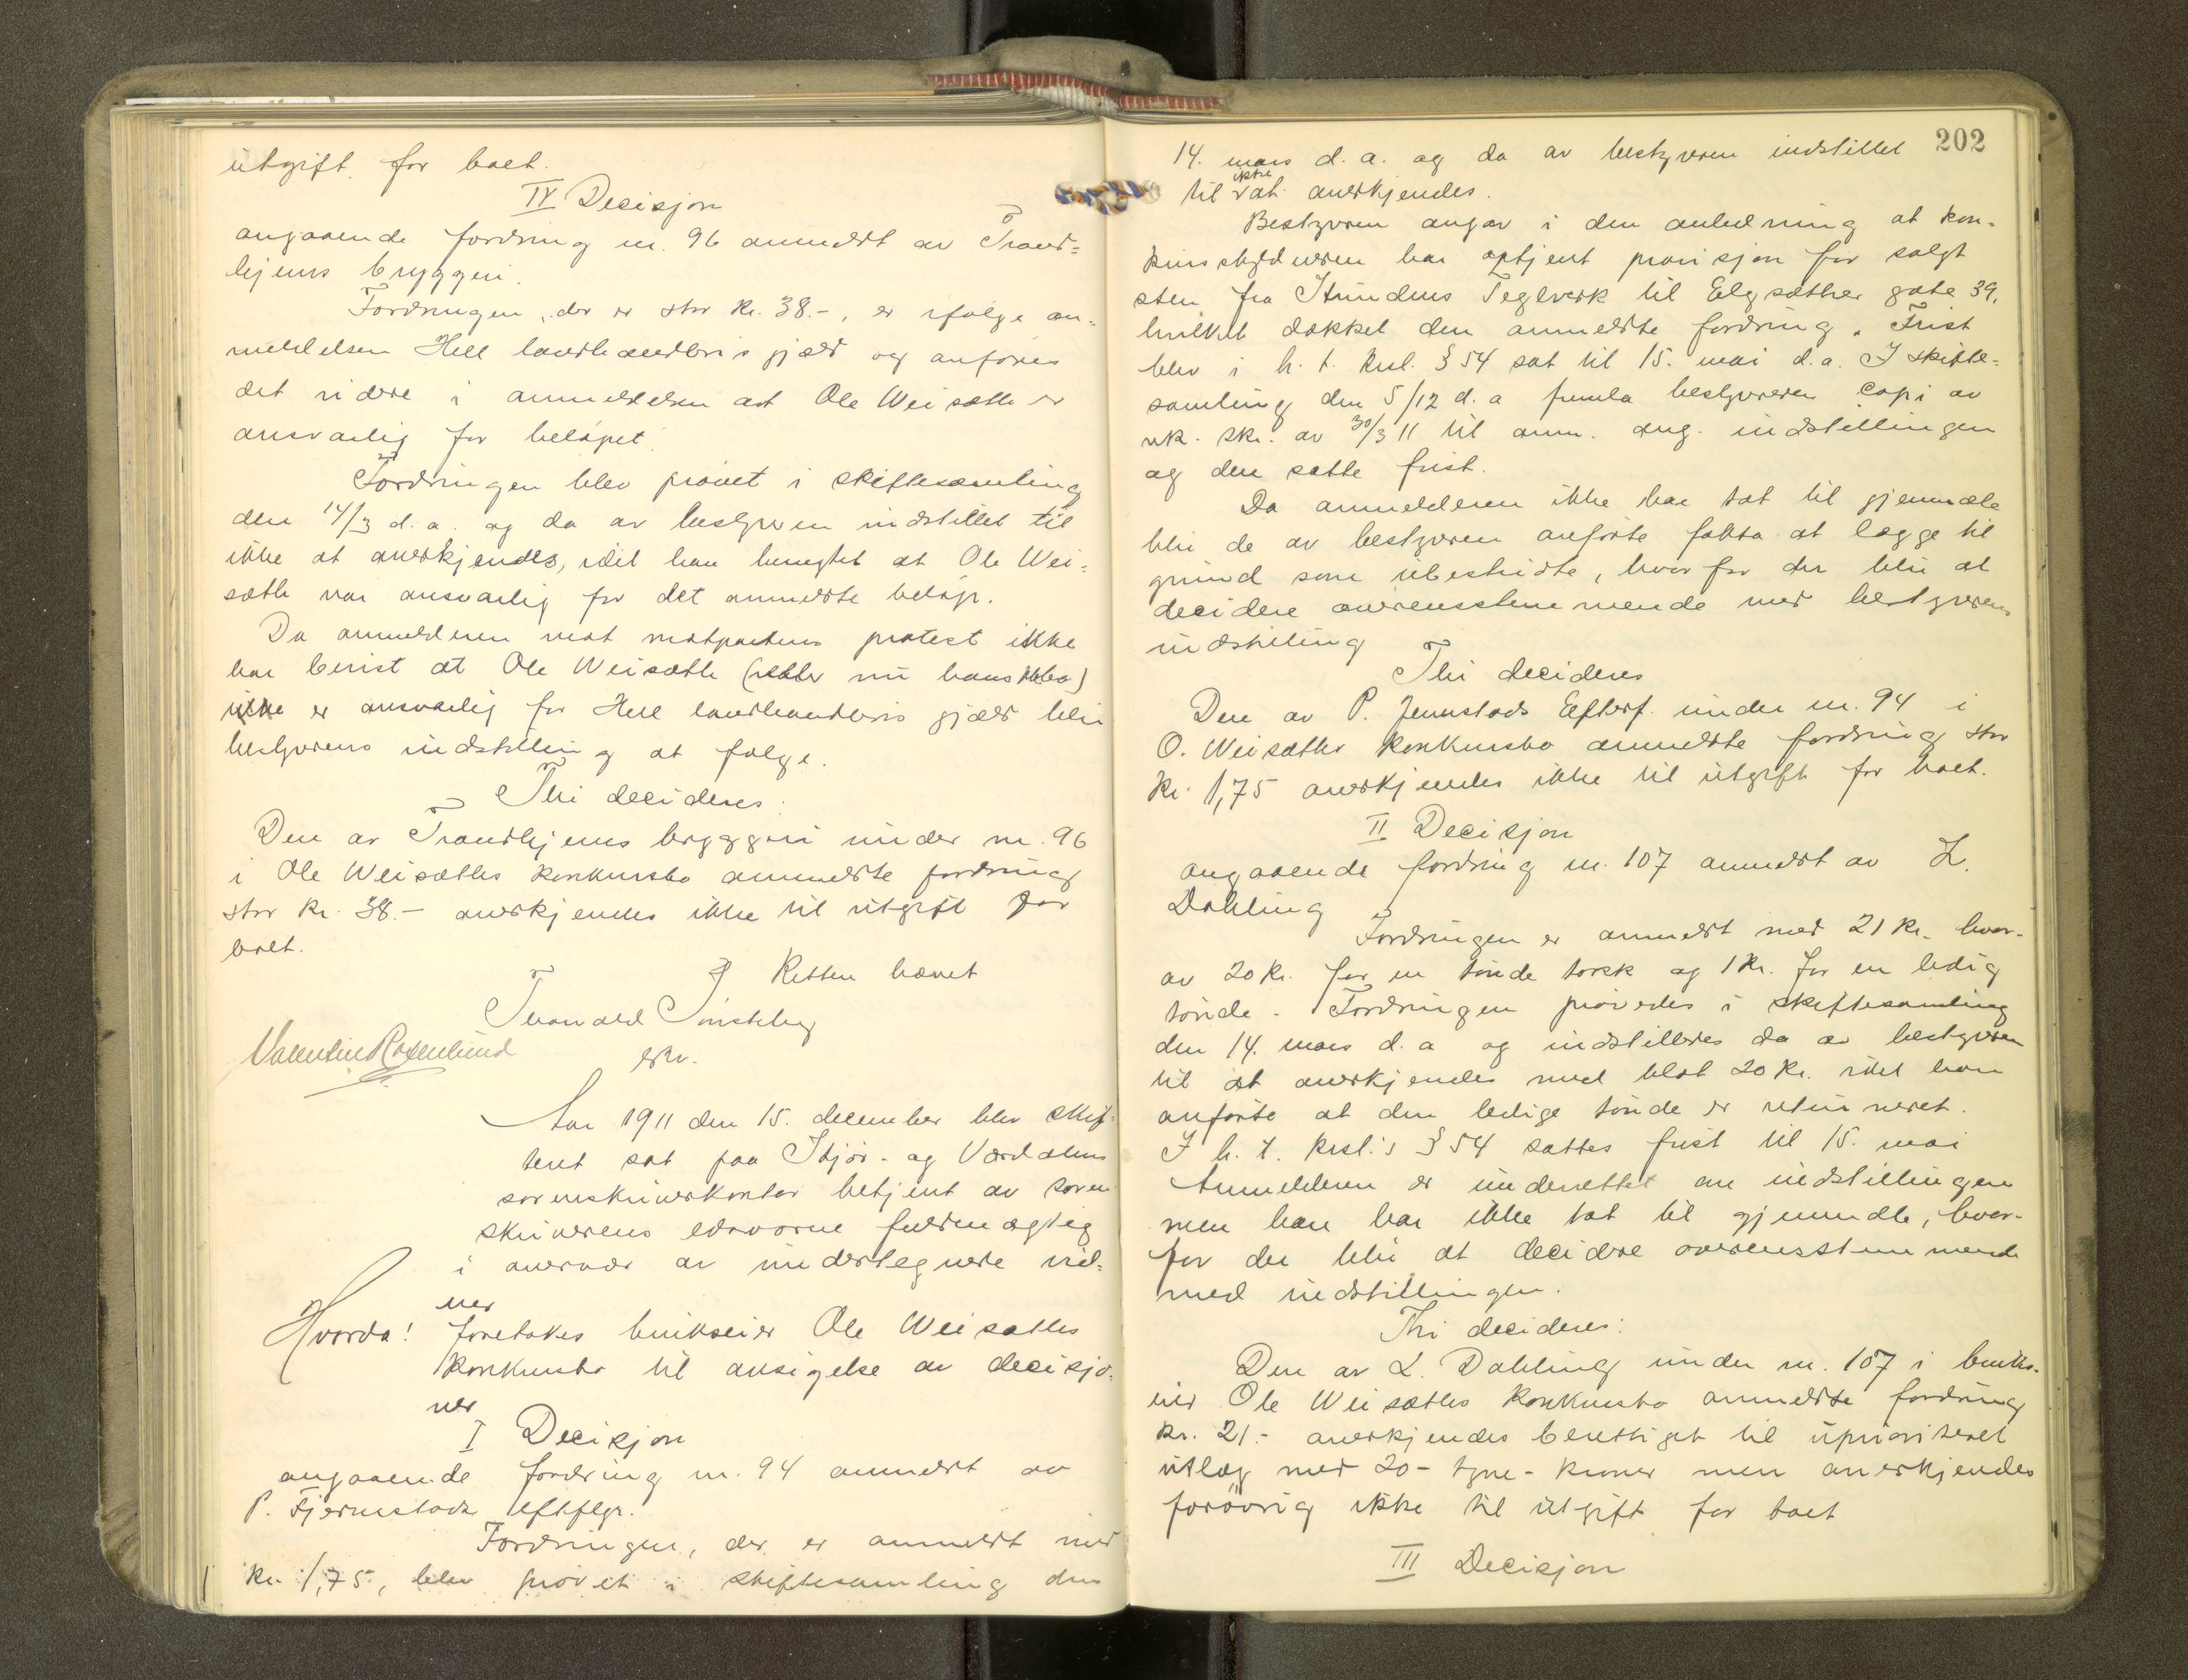 utgift for boet.
IV Decisjon
angaaende fordring nr. 96 anmeldt av Trond-
hjems bryggeri.
Fordringen, der er stor kr. 38.-, er ifølge an-
meldelsen Hell landhandleris gjæld og anføres
det videre i anmeldelsen at Ole Weisæth er
ansvarlig for beløpet.
Fordringen blev prøvet i skiftesamling
den 14/3 d. a. og da av bestyreren indstillet til
ikke at anerkjendes, idet han benegtet at Ole Wei-
sæth var ansvarlig for det anmeldte beløp.
Da anmelderen mot motpartens protest ikke
har bevist at Ole Weisæth (eller nu hans kbo)
ikke er ansvarlig for Hell landhandleris gjæld blir
bestyrerens indstilling at følge.
Thi decideres:
Den av Trondhjems bryggeri under nr. 96
i Ole Weisæths konkursbo anmeldte fordring
stor kr. 38.- anerkjendes ikke til utgift for
boet.
Retten hævet
Tharald Tønsberg
eskr.
Valentin Rosenlund
Aar 1911 den 15. december blev skif-
teret sat paa Stjør- og Værdalens
sorenskriverkontor betjent av soren
skriverens edsvorne fuldmægtig
i overvær av undertegnede vid-
ner
Hvorda! foretokes brukseier Ole Weisæths
konkursbo til avsigelse av decisjo-
ner
I Decisjon
angaaende fordring nr. 94 anmeldt av
P. Fjermstads eftflgr.
Fordringen, der er anmeldt med
kr. 1,75, blev prøvet i skiftesamling den
202
14. mars d. a. og da av bestyreren indstillet
til ikke at anerkjendes.
Bestyreren angav i den anledning at kon-
kursskyldneren har optjent provisjon for solgt
sten fra Teglverk til Elgsæther gate 39,
hvilket dækket den anmeldte fordring. Frist
blev i h. t. krsl. § 54 sat til 15. mai d. a. I skifte-
samling den 5/12 d. a fremla bestyreren copi av
rek. skr. av 30/3 11 til anm. ang. indstillingen
og den satte frist.
Da anmelderen ikke har tat til gjenmæle
blir de av bestyreren anførte fakta at lægge til
grund som ubestridte, hvorfor der blir at
decidere overensstemmende med bestyrerens
indstilling
Thi decideres
Den av P. Jermstads Efterf. under nr. 94 i
O. Weisæths konkursbo anmeldte fordring stor
kr. 1,75 anerkjendes ikke til utgift for boet.
II Decisjon
angaaende fordring nr. 107 anmeldt av L.
Dahling
Fordringen er anmeldt med 21 kr. hvor-
av 20 kr. for en tønde torsk og 1 kr. for en ledig
tønde. Fordringen prøvedes i skiftesamling
den 14. mars d. a og indstilledes da av bestyreren
til at anerkjendes med blot 20 kr. idet han
anførte at den ledige tønde er returneret.
I h. t. krsl.'s § 54 sattes frist til 15. mai
Anmelderen er underrettet om indstillingen
men han har ikke tat til gjenmæle, hvor-
for der blir at decidere overensstemmende
med indstillingen.
Thi decideres:
Den av L. Dahling under nr. 107 i bruks-
eier Ole Weisæths konkursbo anmeldte fordring
kr. 21.- anerkjendes berettiget til uprioriteret
utlæg med 20 - tyve - kroner men anerkjendes
forøvrig ikke til utgift for boet
III Decisjon